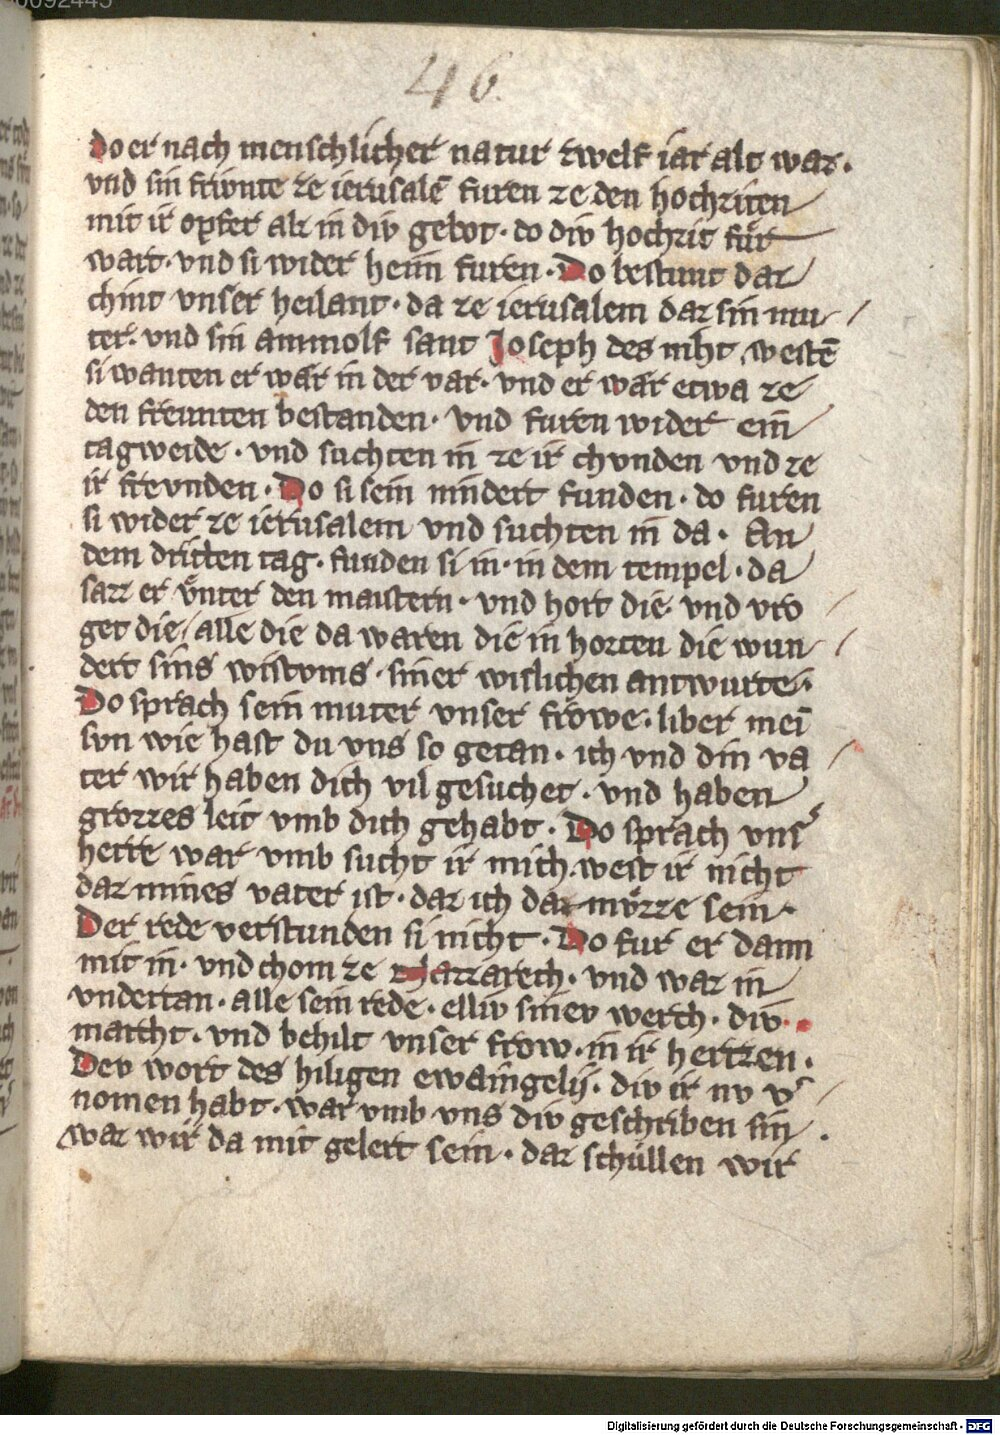 46.
Do er nach menschlicher natur zwelf iar alt waz.
vnd sin frivnte ze ierusalē furen ze den hochziten
mit ir opfer alz in div gebot. do div hochzit fuͤr
wart. vnd si wider heim furen. Do bestunt daz
chint vnser heilant. da ze ierusalem daz sin mu-
ter. vnd sin ammolf sant Joseph des niht westē
si wanten er wär in der var. vnd er wär etwa ze
den freunten bestanden. vnd furen wider ein
tagweide. vnd suchten in ze ir chvnden vnd ze
ir frevnden. Do si sein nindert funden. do furen
si wider ze ierusalem vnd suchten in da. An
dem dritten tag. funden si in. in dem tempel. da
sazz er vͦnter den maistern. vnd hort die vnd vro
get die/ alle die da waren die in horten die wun-
dert sins wistvms. siner wislichen antwurte.
Do sprach sein muter vnser frowe. liber mei
svn wie hast du vns so getan. ich vnd din va
ter wir haben dich vil gesuchet. vnd haben
grozzes leit vmb dich gehabt. Do sprach vnsˢ
herre war vmb sucht ir mich. west ir nicht
daz mines vater ist. daz ich daz mvͦzze sein.
Der rede verstunden si nicht. Do fur er dann
mit in. vnd chom ze Nazzarech. vnd waz in
vndertan. alle sein rede. elliv sinev werch. div
marcht. vnd behilt vnser frow. in ir hertzen.
Dev wort des hiligen ewaingelij. div ir nv vˢ
nomen habt. war vmb vns div geschriben sin
waz wir da mit gelert sein. daz schüllen wir
Digitalisierung gefördert durch die Deutsche Forschungsgemeinschaft - DFG